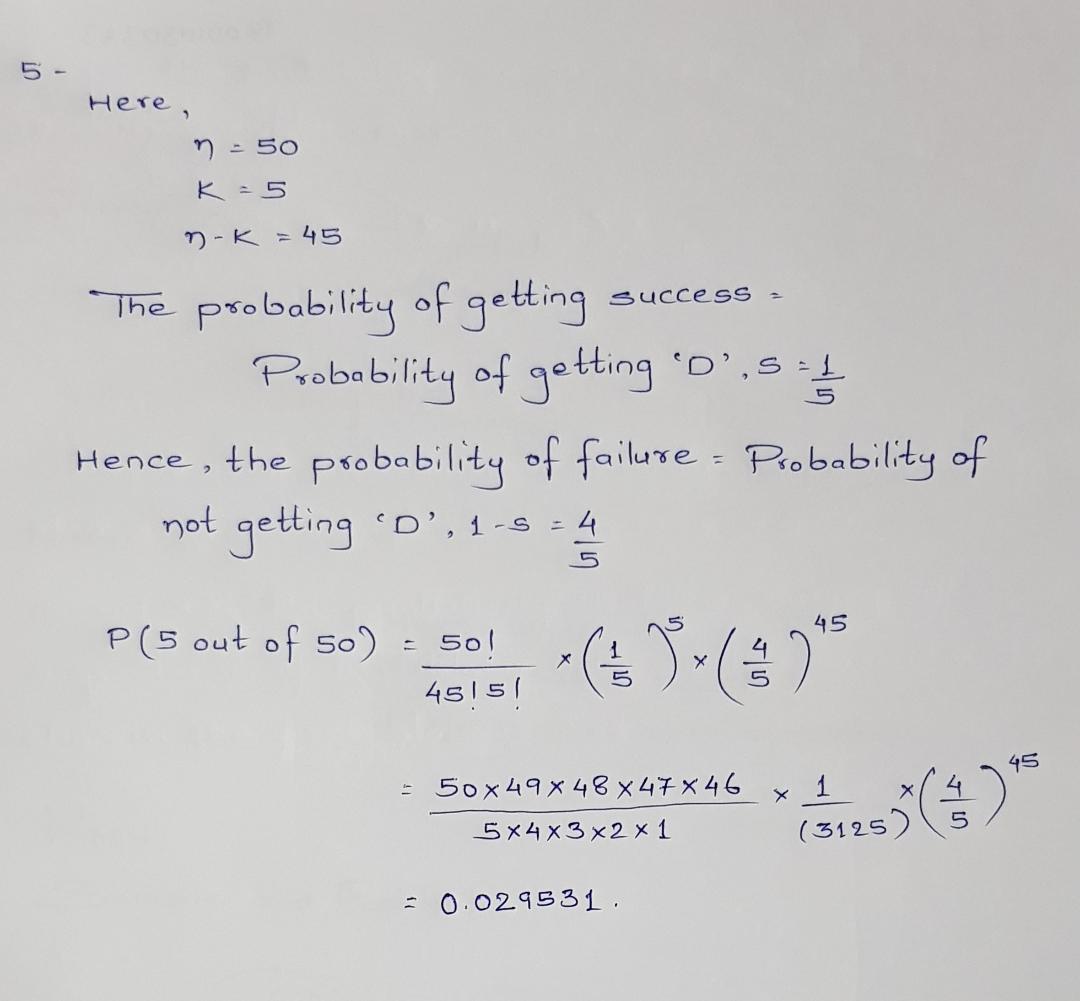 5 -
Here,
n = 50
K = 5
n - K = 45
The probability of getting success =
Probability of getting 'D', S = 1/5
Hence, the probability of failure = Probability of
not getting 'D', 1 - S = 4/5
P(5 out of 50) = 50! / 45! 5! × (1/5)^5 × (4/5)^45
= 50 × 49 × 48 × 47 × 46 / 5 × 4 × 3 × 2 × 1 × 1 / (3125) × (4/5)^45
= 0.029531.